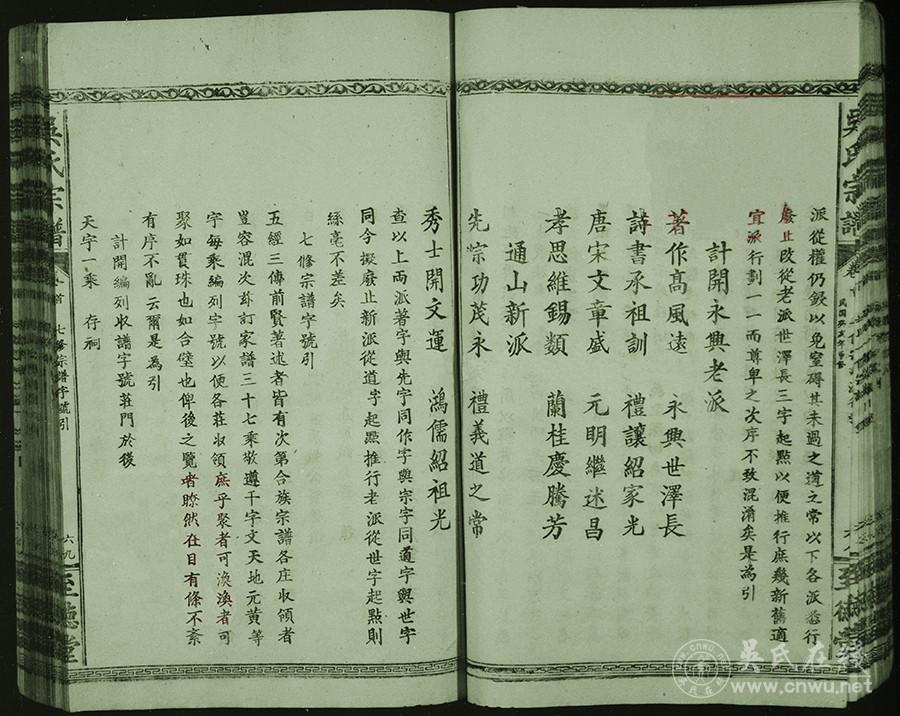 吳氏宗譜
派從權仍録以免窒碍其未過之道之常以下各派悉行
廢止改從老派世澤長三字起點以便推行庶幾新舊適
宜派行劃一一而尊卑之次序不致混淆矣是為引
計開永興老派
著作高風遠　永興世澤長
詩書承祖訓　禮讓紹家光
唐宋文章盛　元明繼述昌
孝思維錫類　蘭桂慶騰芳
通山新派
先宗功茂永　禮義道之常
秀士開文運　鴻儒紹祖光
查以上兩派著字與先字同作字與宗字同道字與世字
同今擬廢止新派從道字起點推行老派從世字起點則
絲毫不差矣
七修宗譜字號引
五經三傳前賢著述者皆有次第合族宗譜各庄收領者
豈容混次兹訂家譜三十七乘敬遵千字文天地元黃等
字每乘編列字號以便各莊収領庶乎聚者可渙渙者可
聚如貫珠也如合璧也俾後之覽者瞭然在目有條不紊
有序不亂云爾是為引
計開編列収譜字號莊門於後
天字一乘　存祠
吳氏宗譜
七修宗譜字號引
六九
至德堂
吳氏在线
www.cnwu.net